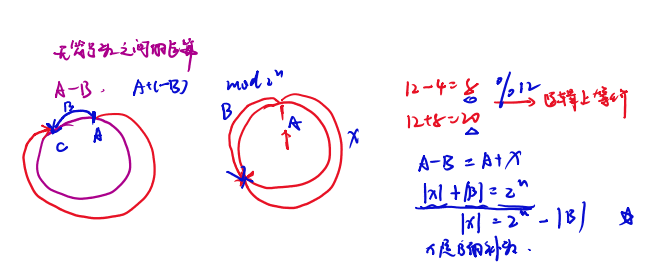 无符号数之间的运算
A-B. A+(-B)
B
A
C
mod 2ⁿ
B
A
X
12-4=8 % 12
12+8=20 → 运算上等价
A-B = A+X
|X|+|B|=2ⁿ
|X|=2ⁿ-|B|
X是B的补数.